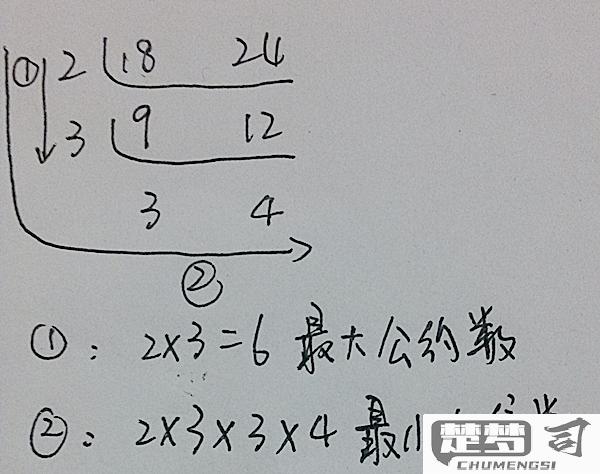 ① 2 18 24
3 9 12
3 4
②
①: 2×3=6 最大公约数
②: 2×3×3×4 最小
楚梦司
CHUMENGSI